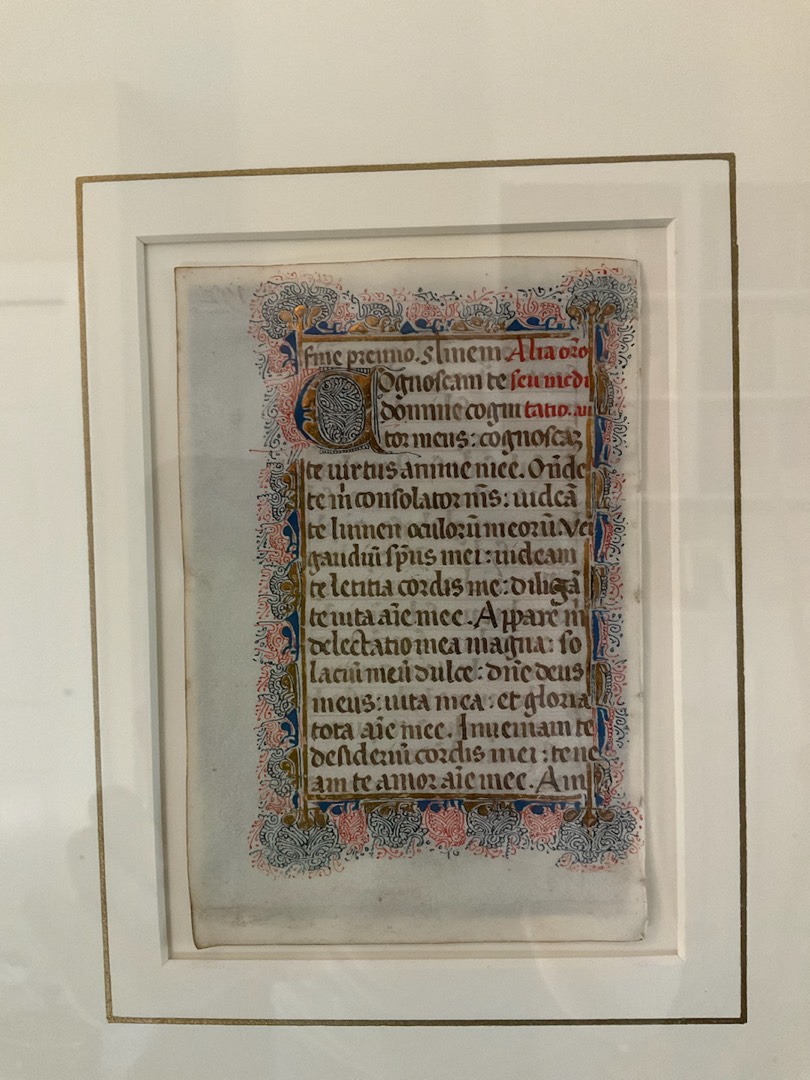 fine premio. s. line m Alia oro
Cognoscam te seu medi
domine cogni tatio. ut
tor meus: cognoscaz
te uirtus anime mee. On̄de
te m̄ consolator m̄s: uideā
te lumen oculorū meorū. Vei
gaudiū sp̄us mei: uideam
te letitia cordis me: diligā
te uita aīe mee. Appare m̄
delectatio mea magna: so
laciū meū dulce: dn̄e deus
meus: uita mea: et gloria
tota aīe mee. Inueniam te
desideriū cordis mei: tene
am te amor aīe mee. Am